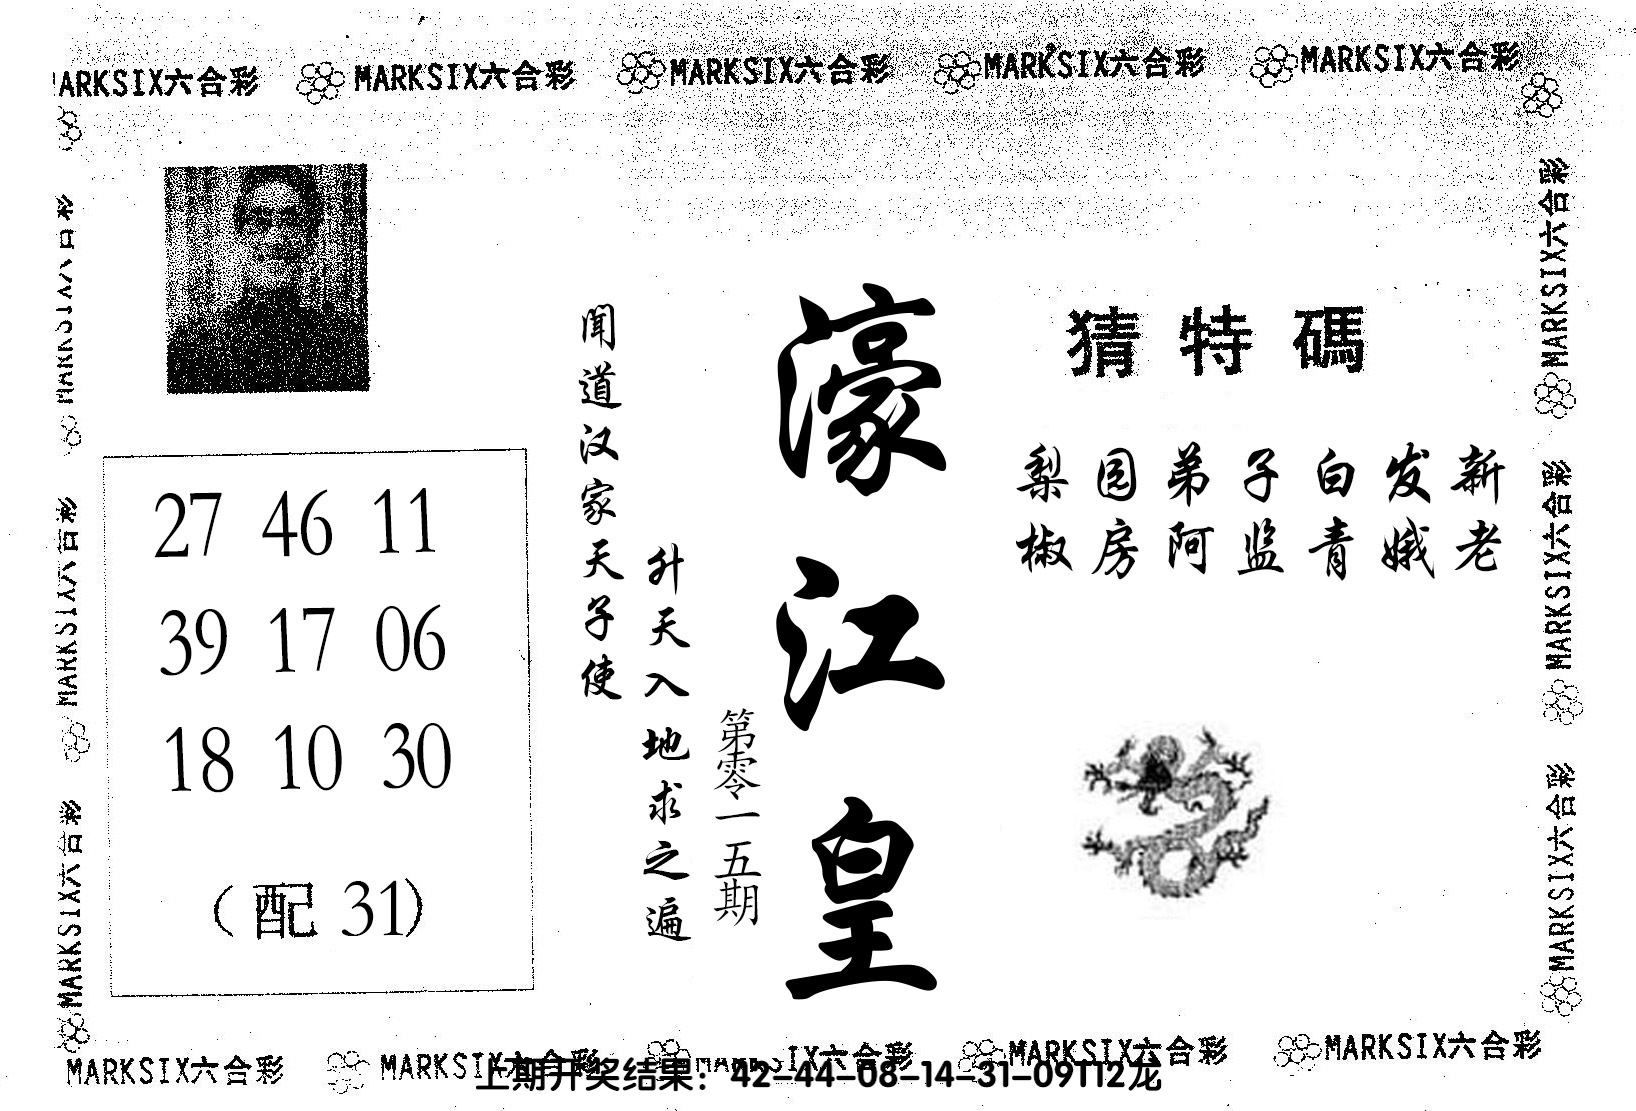 MARKSIX六合彩 MARKSIX六合彩 MARKSIX六合彩 MARKSIX六合彩
猜特碼
梨园弟子白发新
椒房阿监青娥老
濠江皇
第零一五期
升天入地求之遍
闻道汉家天子使
27 46 11
39 17 06
18 10 30
(配 31)
MARKSIX六合彩
MARKSIX六合彩
MARKSIX六合彩
MARKSIX六合彩
MARKSIX六合彩
MARKSIX六合彩 MARKSIX六合彩 MARKSIX六合彩 MARKSIX六合彩
上期开奖结果：42-44-08-14-31-09T12龙